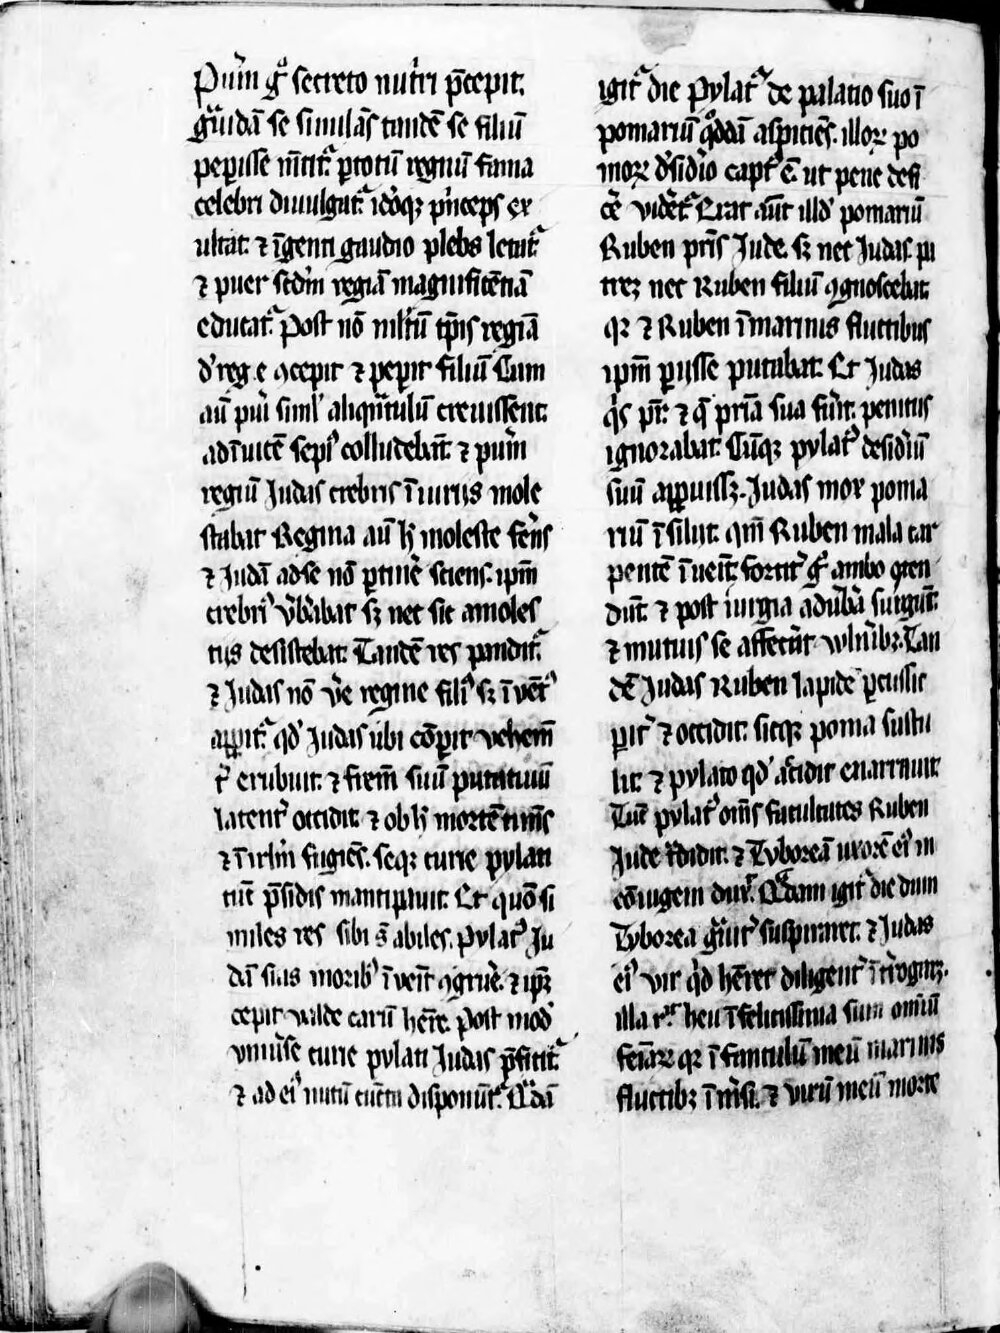 Pu͛m gͦ secreto nut͛ri p̄cepit.
gᷓuidā se simulās tandē se filiū
peꝑisse m̄titᷓ. ꝑ totū regnū fama
celebri diuulgatᷓ. idͦqꝫ p͛nceps ex
ultat. ⁊ īgenti gaudio plebs letatᷓ
⁊ puer scdm̄ regiā magnificētiā
educatᷓ. Post nō ml̄tū tp̄is regīa
d͛ reg e ꝯcepit ⁊ peꝑit filiū Cum
aū pu͛i siml̓ aliqᷓntulū creuissent.
ad īuicē sepiꝰ colludebāt. ⁊ pu͛m
regiū Judas crebris īiuriis mole
stabat Regina aū h̄ moleste fe͛ns
⁊ Judā ad se nō ꝑtine͛ sciens. ipm̄
crebriꝰ v͛b͛abat sꝫ nec sic a moles
tiis desistebat. Tandē res panditᷓ.
⁊ Judas nō v͛e regine filiꝰ sꝫ īuētꝰ
aꝑitᷓ. qd̓ Judas ubi cōꝑit vehem̄
t͛ erubuit. ⁊ frēm suū putatiuū
latent͛ occidit. ⁊ ob h̄ mortē timēs
⁊ ī irlm̄ fugiēs. seqꝫ curie pylati
tūc p̄sidis mancipauit. Et quō si
miles res sibi s̄ abiles. Pylatꝰ Ju
dā suis moribꝰ īuēit ꝯgrue͛. ⁊ ip̄ꝫ
cepit valde carū hēre. Post modꝰ
vniu͛se curie pylati Judas p̄ficitᷓ
⁊ ad eiꝰ nutū cūcta disponūtᷓ. Qᷓdā
igitᷓ die Pylatꝰ de palatio suo ī
pomariū qͦddā aspiciēs. illoꝝ po
moꝝ d͛sid͛io captꝰ ē ut pene defi
ce͛ videtᷓ Erat aūt illd̓ pomariū
Ruben pr̄is Jude. sꝫ nec Judas pa
trēꝫ nec Ruben filiū ꝯgnoscebat.
qꝛ ⁊ Ruben ī marinis fluctibus
ipm̄ ꝑijsse putabat. Et Judas
qͥs pr̄. ⁊ q̄ pria sua fu͛it. penitus
ignorabat. Cūqꝫ pylatꝰ desid͛iū
suū aꝑuissꝫ. Judas mox poma
riū īsiluit. qm̄ Ruben mala car
pentē īueīt. fortit͛ gͦ ambo ꝯten
dūt. ⁊ post iurgia ad v͛b͛a surgūt.
⁊ mutuis se affec͛nt vlnībꝫ. Tan
dē Judas Ruben lapide ꝑcussit
ꝑit͛ ⁊ occidit. sicqꝫ poma sustu
lit. ⁊ pylato qd̓ accidit enarrauit.
Tūc pylatꝰ om̄s facultates Ruben
Jude t͛didit. ⁊ Tyboreā uxorē eiꝰ in
cōiugem duxᷓ. Qᷓdam igit͛ die dum
Tyborea gᷓuit͛ suspiraret. ⁊ Judas
eiꝰ vir qͥd hēret diligent͛ ī t͛rogꝫ.
illa rᷤ. heu īfelicissima sum omīū
femīaꝝ qꝛ īfantulū meū marinis
fluctibꝫ īm̄si. ⁊ virū meū morte